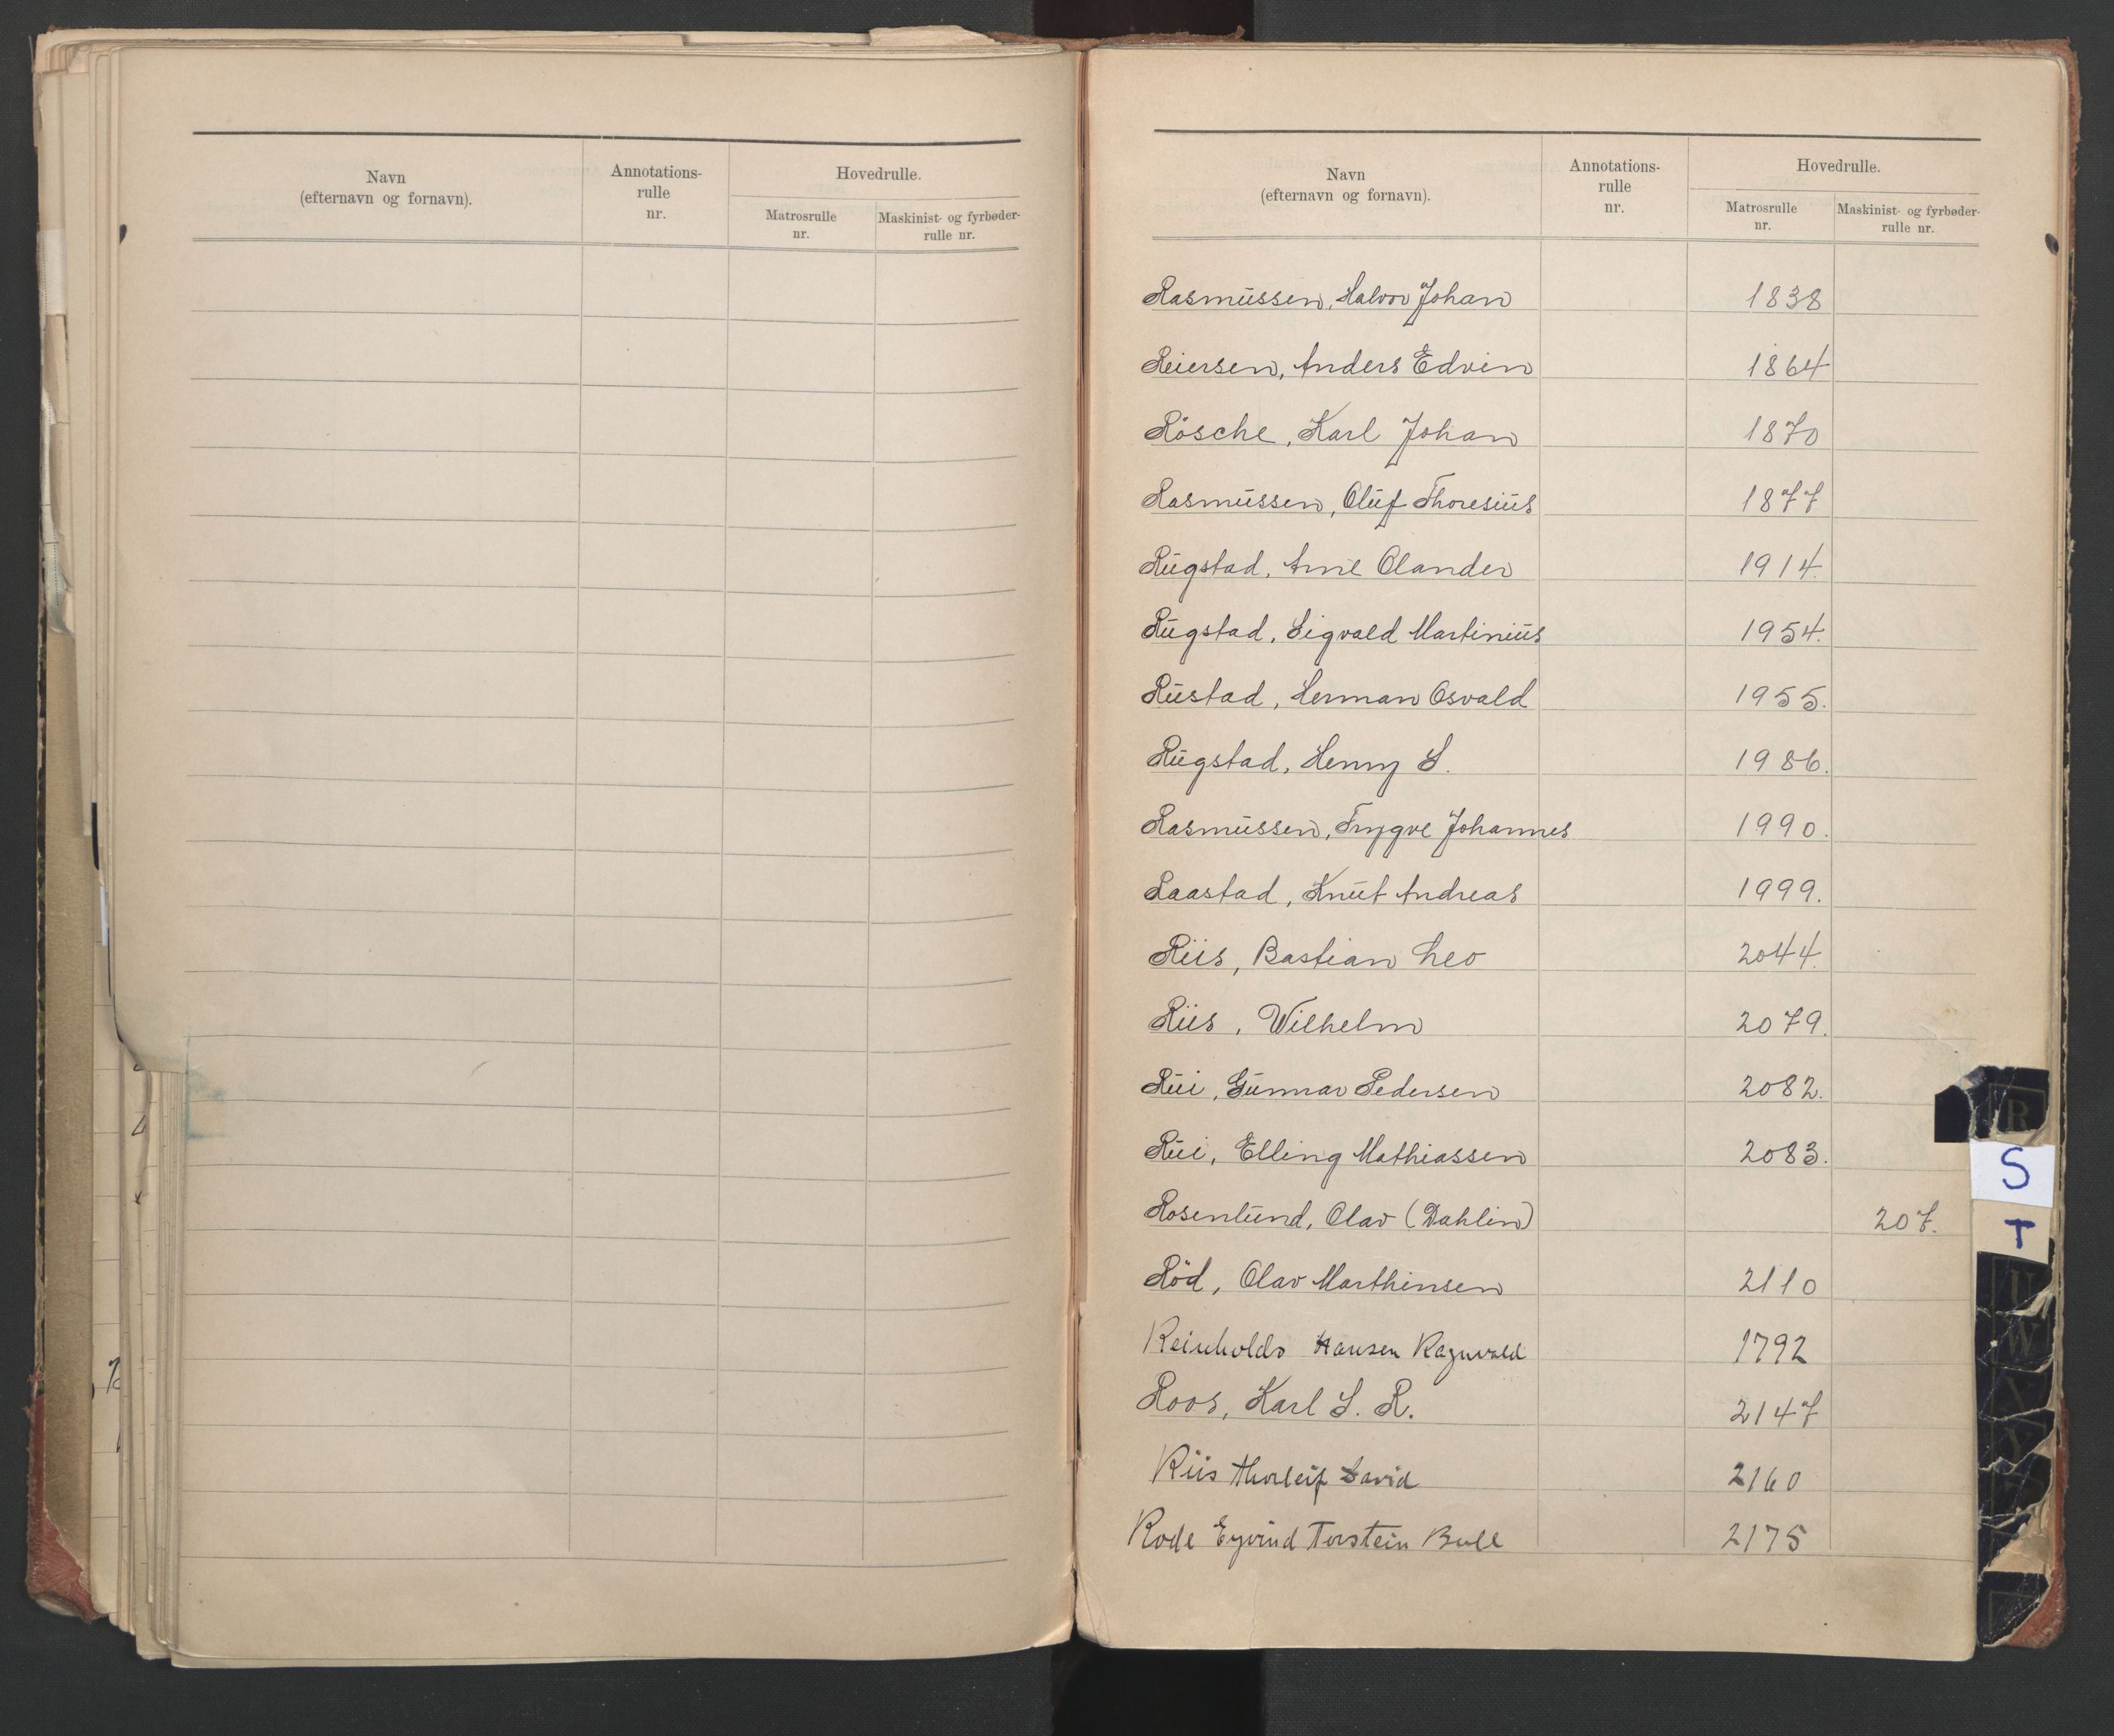 Navn
(efternavn og fornavn).
Annotations-
rulle
nr.
Hovedrulle.
Matrosrulle
nr.
Maskinist- og fyrbøder-
rulle nr.
Navn
(efternavn og fornavn).
Annotations-
rulle
nr.
Hovedrulle.
Matrosrulle
nr.
Maskinist- og fyrbøder-
rulle nr.
Rasmussen, Halvor Johan 1838
Reiersen, Anders Edvin 1864
Rösche, Karl Johan 1870
Rasmussen, Oluf Thoresius 1877
Rugstad, Arne Olander 1914.
Rugstad, Sigvald Martinius 1954.
Rustad, Herman Osvald 1955.
Rugstad, Henry S. 1986.
Rasmussen, Trygve Johannes 1990.
Raastad, Knut Andreas 1999.
Riis, Bastian Leo 2044.
Riis, Wilhelm 2079.
Rui, Gunnar Pedersen 2082.
Rui, Elling Mathiassen 2083.
Rosenlund, Olav (Dahlin) 207.
Röd, Olav Marthinsen 2110
Reinholds Hansen Ragnvald 1792
Roos, Karl S. R. 2147
Riis Thorleif David 2160
Rode Eyvind Torstein Bull 2175
R
S
T
U
W
X
Y